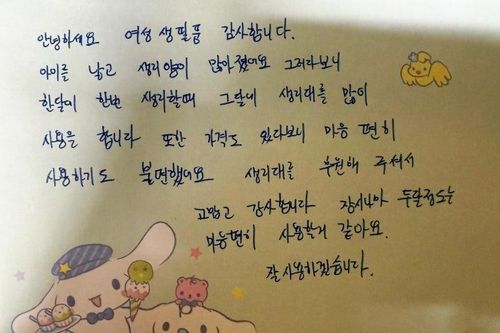 안녕하세요 여성 생필품 감사합니다.
아이를 낳고 생리양이 많아졌어요 그러다보니
한달에 한번 생리할때 그달에 생리대를 많이
사용을 합니다 또한 가격도 있다보니 마음 편히
사용하기도 불편했어요 생리대를 후원해 주셔서
고맙고 감사합니다 두달정도는
마음편히 사용할거 같아요.
잘사용하겠습니다.